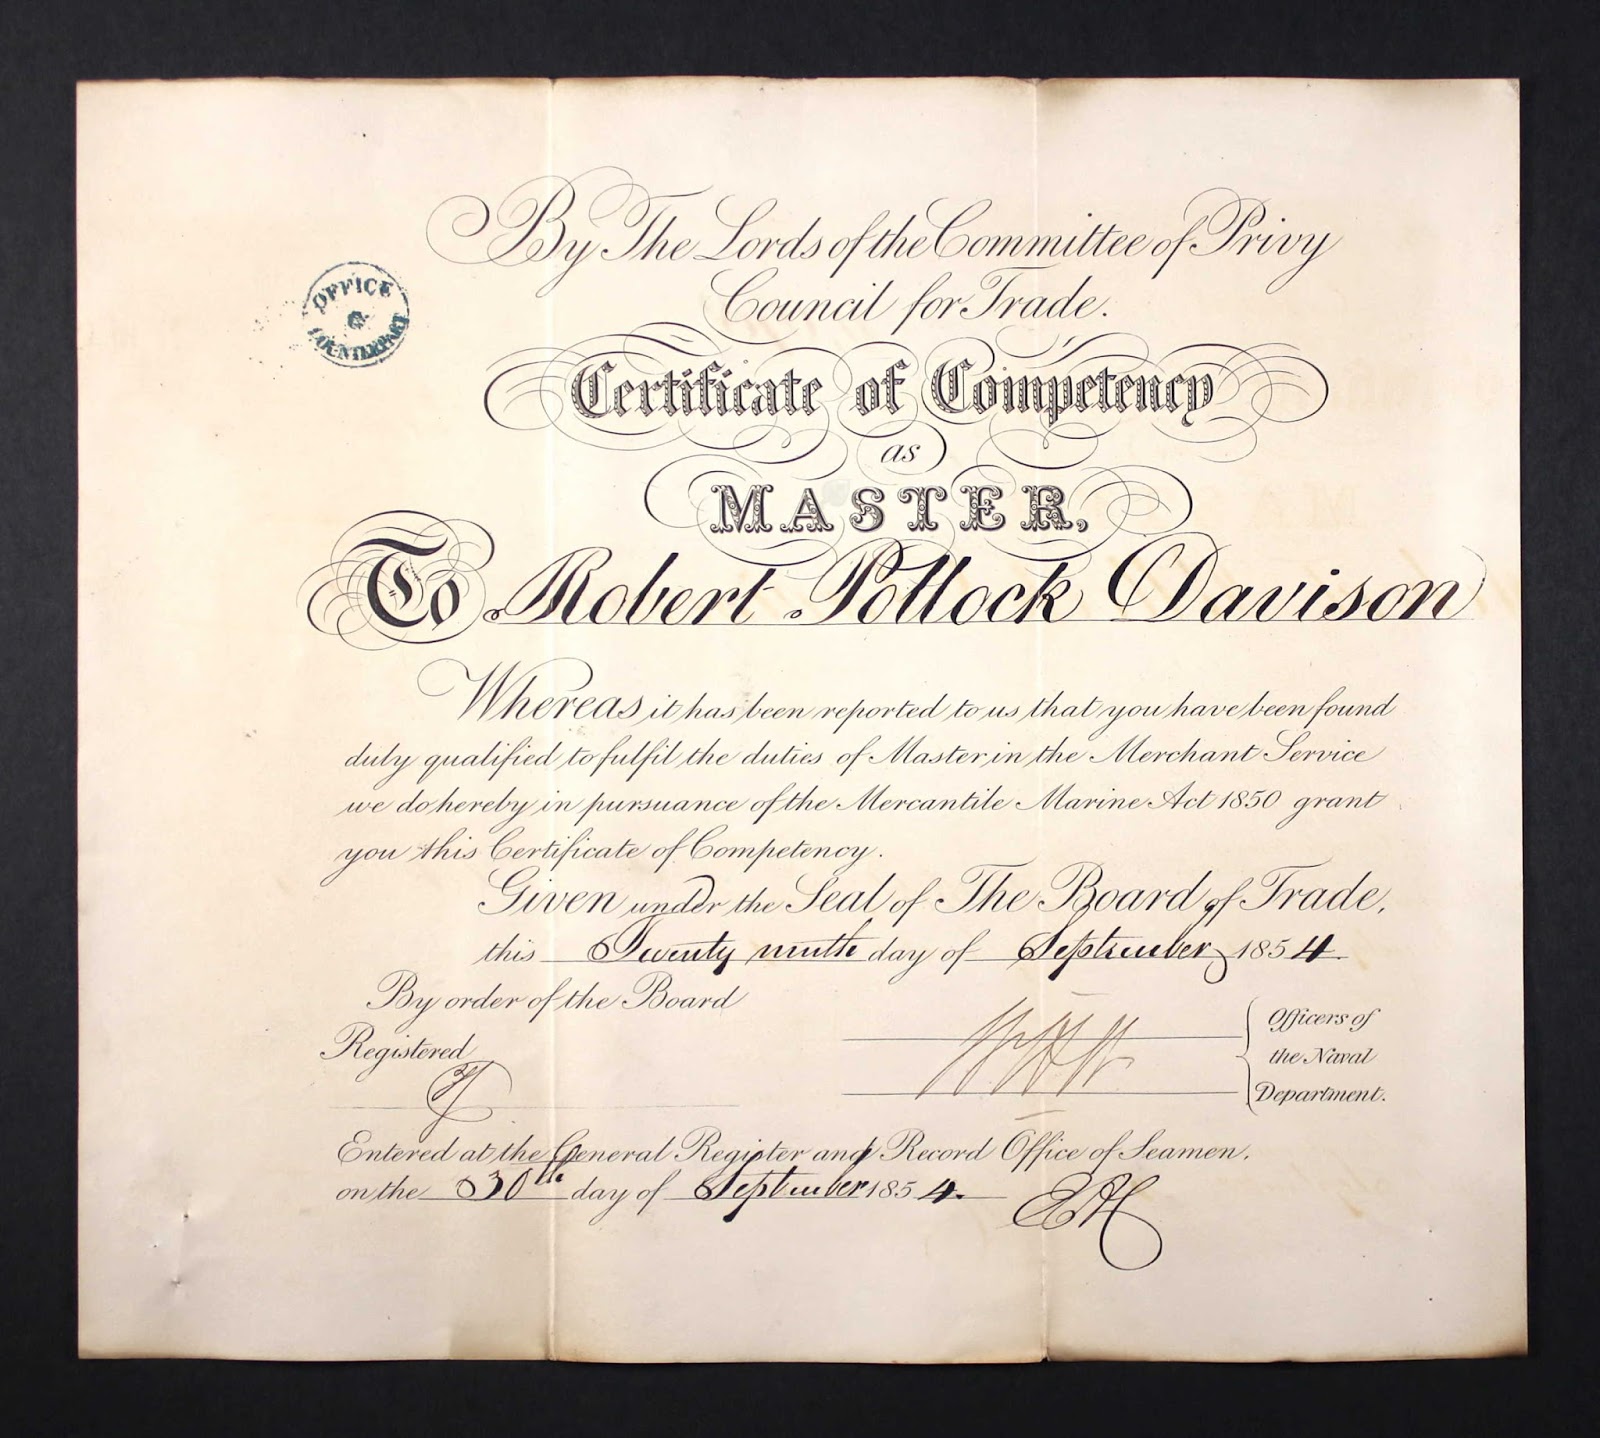 By The Lords of the Committee of Privy
Council for Trade.
OFFICE
COUNTERPART
Certificate of Competency
as
MASTER,
To Robert Pollock Davison
Whereas it has been reported to us that you have been found
duly qualified to fulfil the duties of Master in the Merchant Service
we do hereby in pursuance of the Mercantile Marine Act 1850 grant
you this Certificate of Competency.
Given under the Seal of The Board of Trade,
this Twenty ninth day of September 1854.
By order of the Board
Officers of
the Naval
Department.
Registered
Entered at the General Register and Record Office of Seamen.
on the 30th day of September 1854.